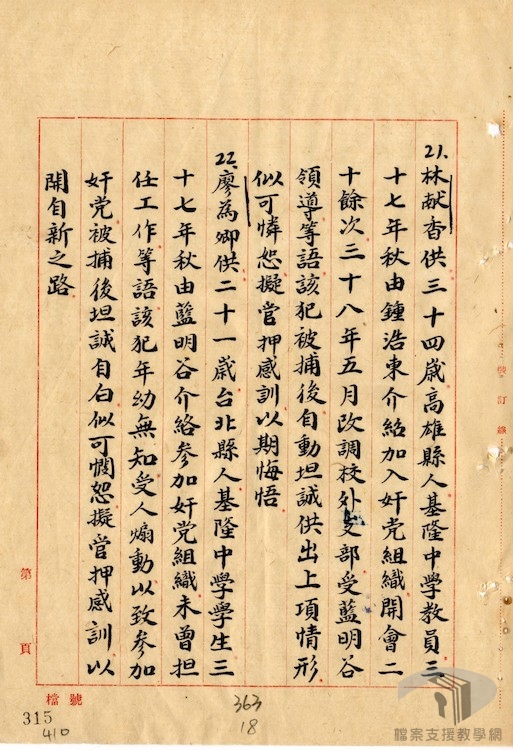 21.林献香供三十四歲高雄縣人基隆中學教員三
十七年秋由鍾浩東介紹加入奸党組織開會二
十餘次三十八年五月改調校外支部受藍明谷
領導等語該犯被捕後自動坦誠供出上項情形
似可憐恕擬管押感訓以期悔悟
22.廖為卿供二十一歲台北縣人基隆中學學生三
十七年秋由藍明谷介紹參加奸党組織未曾担
任工作等語該犯年幼無知受人煽動以致參加
奸党被捕後坦誠自白似可憫恕擬管押感訓以
開自新之路
裝訂線
第 頁
檔號
315
410
363
18
檔案支援教學網